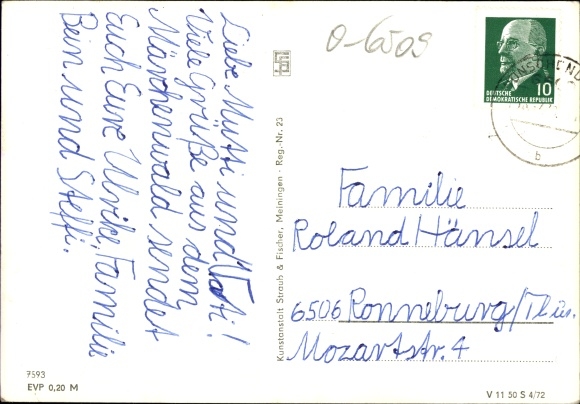 Liebe Mutti und Vati!
Viele Grüße aus dem
Märchenwald sendet
Euch Eure Ulrike, Familie
Bein und Steffi.
7593
EVP 0,20 M
Kunstanstalt Straub & Fischer, Meiningen · Reg.-Nr. 23
0-6509
DEUTSCHE
DEMOKRATISCHE REPUBLIK
10
b
Familie
Roland Hänsel
6506 Ronneburg/Thür.
Mozartstr. 4
V 11 50 S 4/72